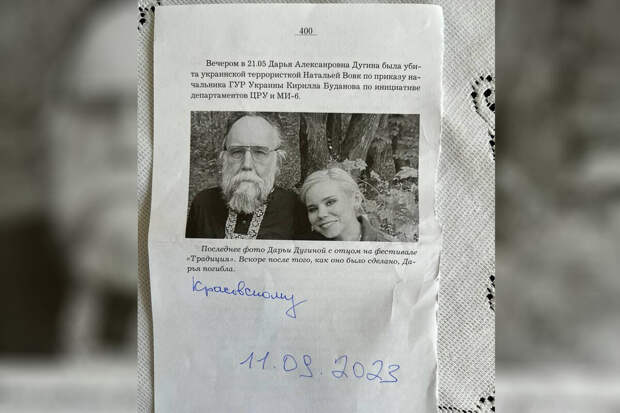 400
Вечером в 21.05 Дарья Александровна Дугина была уби-
та украинской террористкой Натальей Вовк по приказу на-
чальника ГУР Украины Кирилла Буданова по инициативе
департаментов ЦРУ и МИ-6.
Последнее фото Дарьи Дугиной с отцом на фестивале
«Традиция». Вскоре после того, как оно было сделано, Да-
рья погибла.
Красовскому
11.09.2023